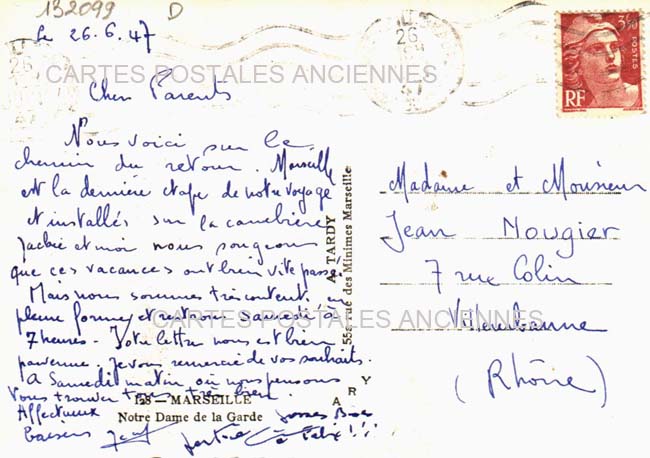 132099 D
le 26.6.47
CARTES POSTALES ANCIENNES
Chers Parents
Nous voici sur le
chemin du retour. Marseille
est la dernière étape de notre voyage
et installés sur la canebière
Jackie et moi nous songeons
que ces vacances ont bien vite passé
Mais nous sommes très contents en
pleine forme et rentrons samedi à
7 heures. Votre lettre nous est bien
parvenue. Je vous remercie de vos souhaits.
A Samedi matin où nous pensons
vous trouver très bien.
Affectueux
baisers
128 - MARSEILLE
Notre Dame de la Garde
A. TARDY
552 rue des Minimes Marseille
YARY
26
47
3F
POSTES
RF
Madame et Monsieur
Jean Nougier
7 rue Colin
Villeurbanne
(Rhône)
CARTES POSTALES ANCIENNES